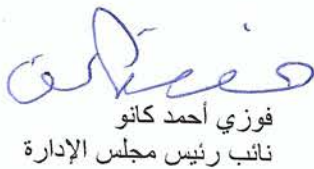 فوزي أحمد كانو
نائب رئيس مجلس الإدارة